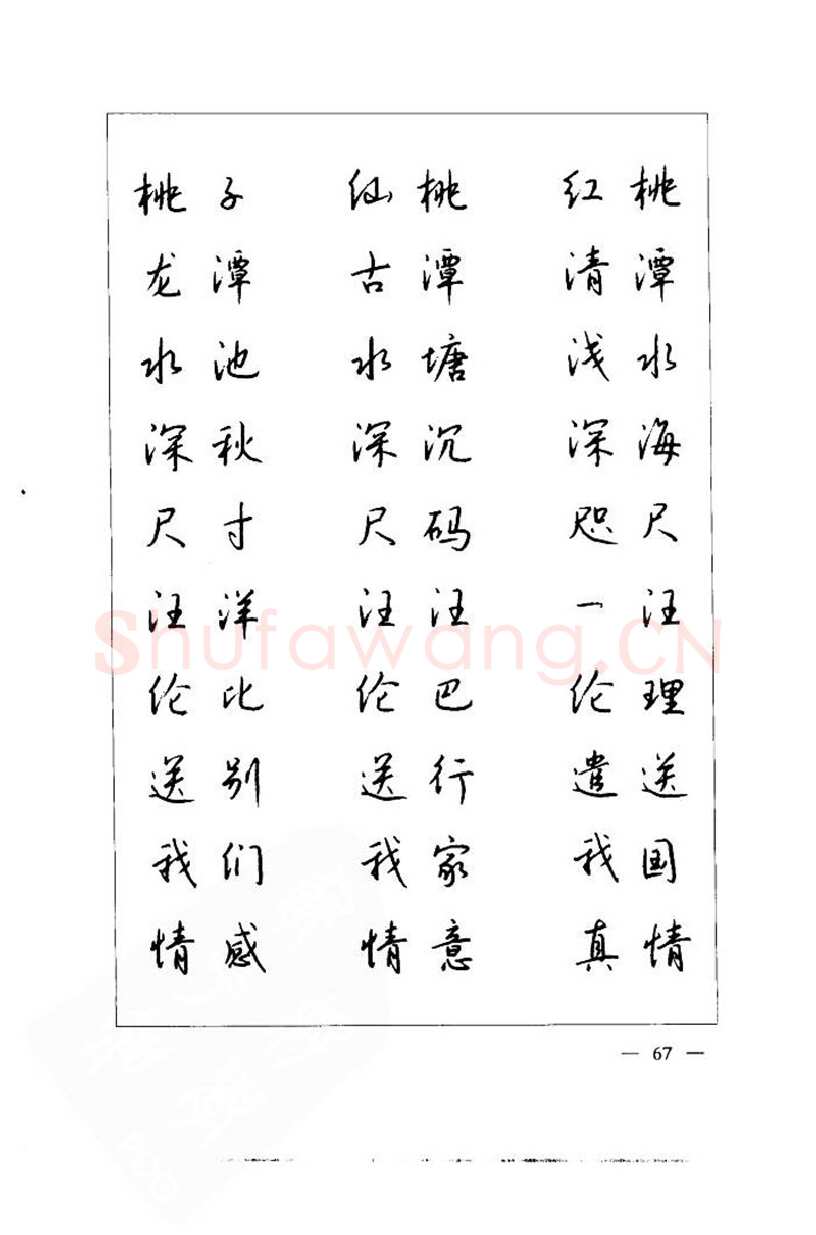 桃潭水海尺汪理送国情
红清浅深咫一伦遣我真
桃潭塘沉码汪巴行家意
仙古水深尺汪伦送我情
子潭池秋寸洋比别们感
桃龙水深尺汪伦送我情
Shufawang.CN
— 67 —